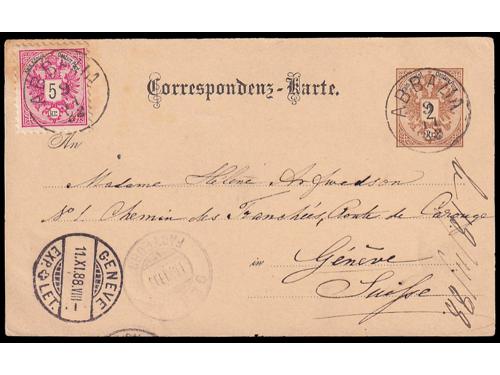 ABBAZIA
5
ABBAZIA
2
Correspondenz-Karte.
An
Madame Hélène Arfwedson
No 1 Chemin des Tranchées, Route de Carouge
in Génève
Suisse
GENÈVE
11.XI.88.VIII-
EXP. LET.